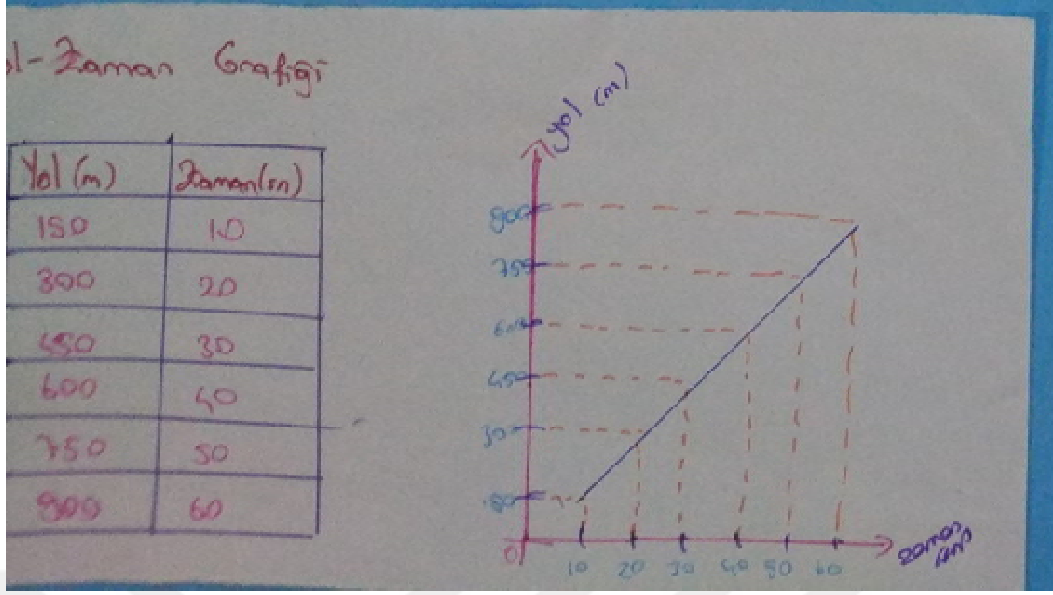 l-Zaman Grafiği
Yol (m) Zaman(sn)
150 10
300 20
450 30
600 40
750 50
900 60
yol (m)
900
750
600
450
30
0
10 20 30 40 50 60
zaman